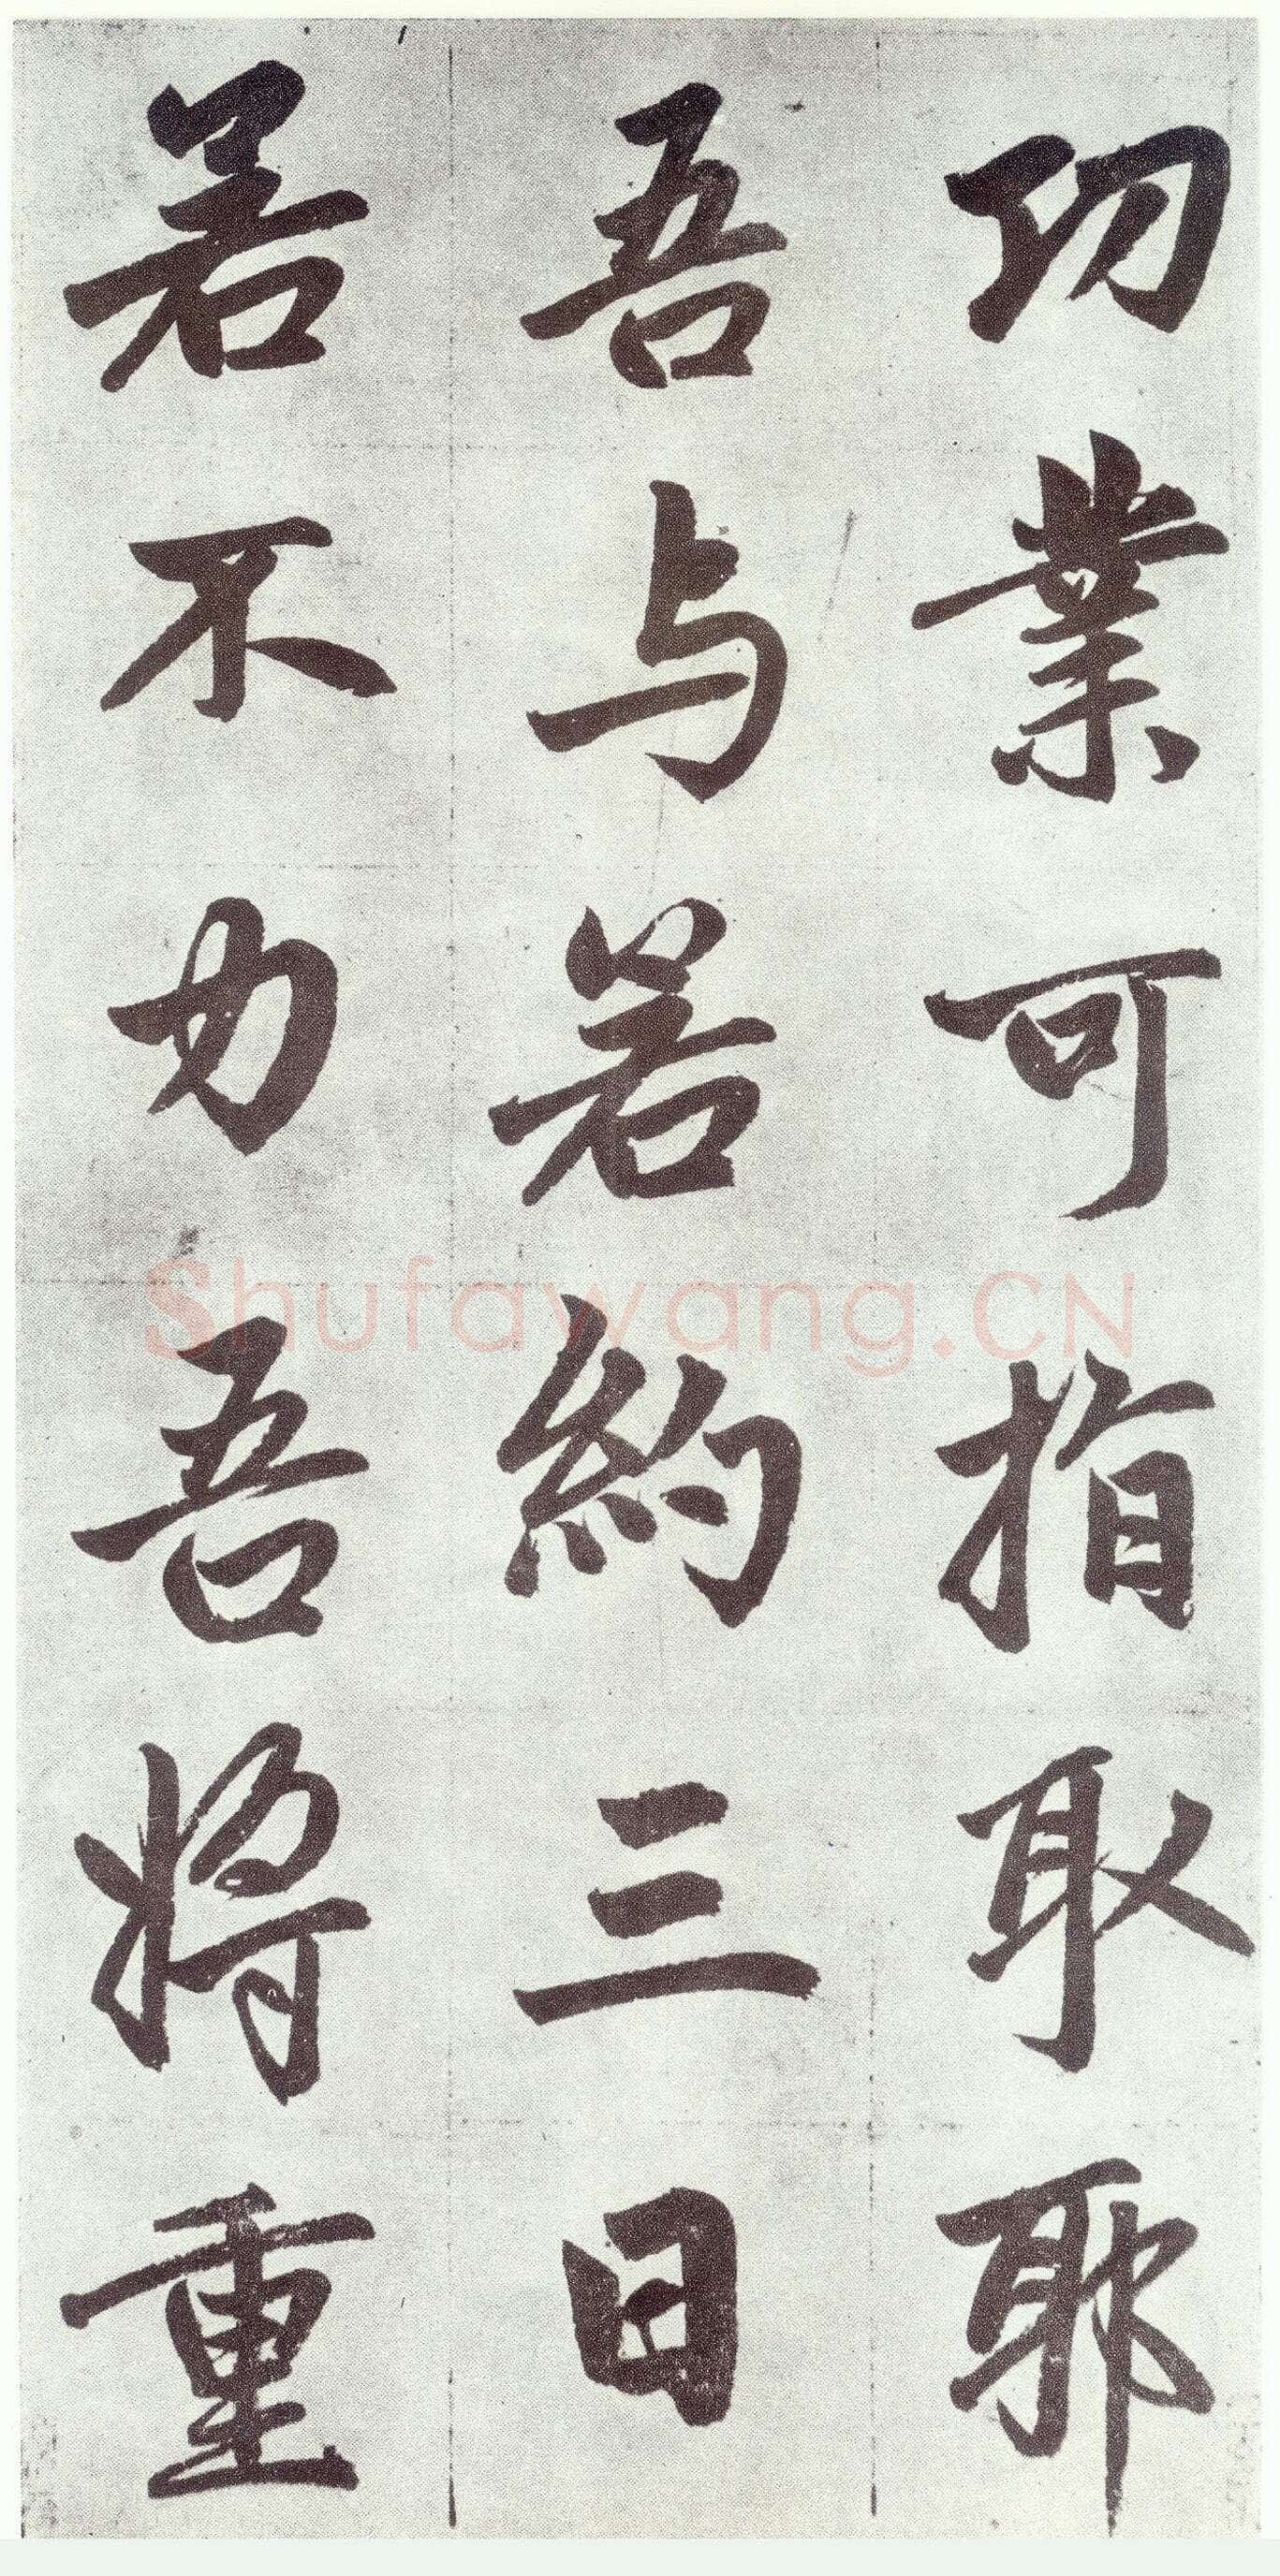 功業可指取耶
吾与若約三日
若不力吾將重
Shufawang.CN